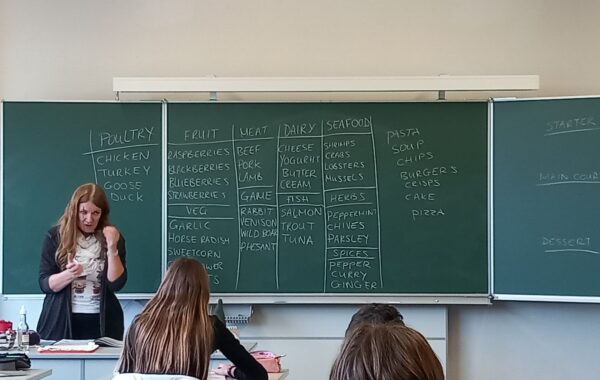 POULTRY
CHICKEN
TURKEY
GOOSE
DUCK
FRUIT
RASPBERRIES
BLACKBERRIES
BLUEBERRIES
STRAWBERRIES
VEG
GARLIC
HORSE RADISH
SWEETCORN
MEAT
BEEF
PORK
LAMB
GAME
RABBIT
VENISON
WILD BOAR
PHESANT
DAIRY
CHEESE
YOGURHT
BUTTER
CREAM
FISH
SALMON
TROUT
TUNA
SEAFOOD
SHRIMPS
CRABS
LOBSTERS
MUSSELS
HERBS
PEPPERMINT
CHIVES
PARSLEY
SPICES
PEPPER
CURRY
GINGER
PASTA
SOUP
CHIPS
BURGER'S
CRISPS
CAKE
PIZZA
STARTER
MAIN COUR
DESSERT